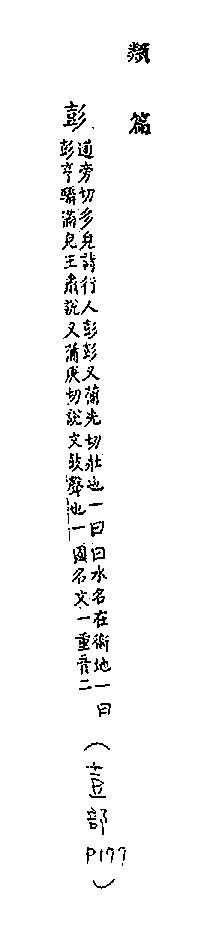 類篇
彭
逋旁切多皃詩行人彭彭又蒲光切壯也一曰曰水名在衛地一曰
彭亨驕滿皃王肅說又蒲庚切說文鼓聲也一國名文一重音二
(壴部 P177)